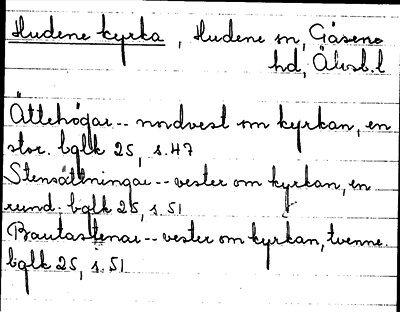 Hudene kyrka, Hudene sn, Gäsene
hd, Älvsb.l
Ättehögar-- nordvest om kyrkan, en
stor. bglk 25, s.47
Stensättningar-- vester om kyrkan, en
rund. bglk 25, s.51
Bautastenar-- vester om kyrkan, tvenne.
bglk 25, s.51